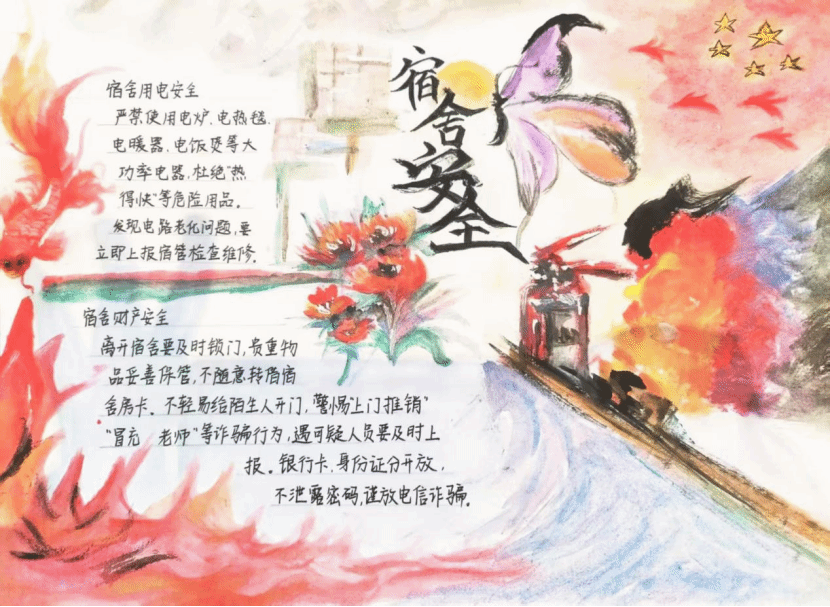 宿舍安全
宿舍用电安全
严禁使用电炉、电热毯、
电暖器、电饭煲等大
功率电器,杜绝"热
得快"等危险用品。
发现电路老化问题,要
立即上报宿管检查维修。
宿舍财产安全
离开宿舍要及时锁门,贵重物
品妥善保管,不随意转借宿
舍房卡。不轻易给陌生人开门,警惕"上门推销"
"冒充 老师"等诈骗行为,遇可疑人员要及时上
报。银行卡,身份证分开放,
不泄露密码,谨放电信诈骗。